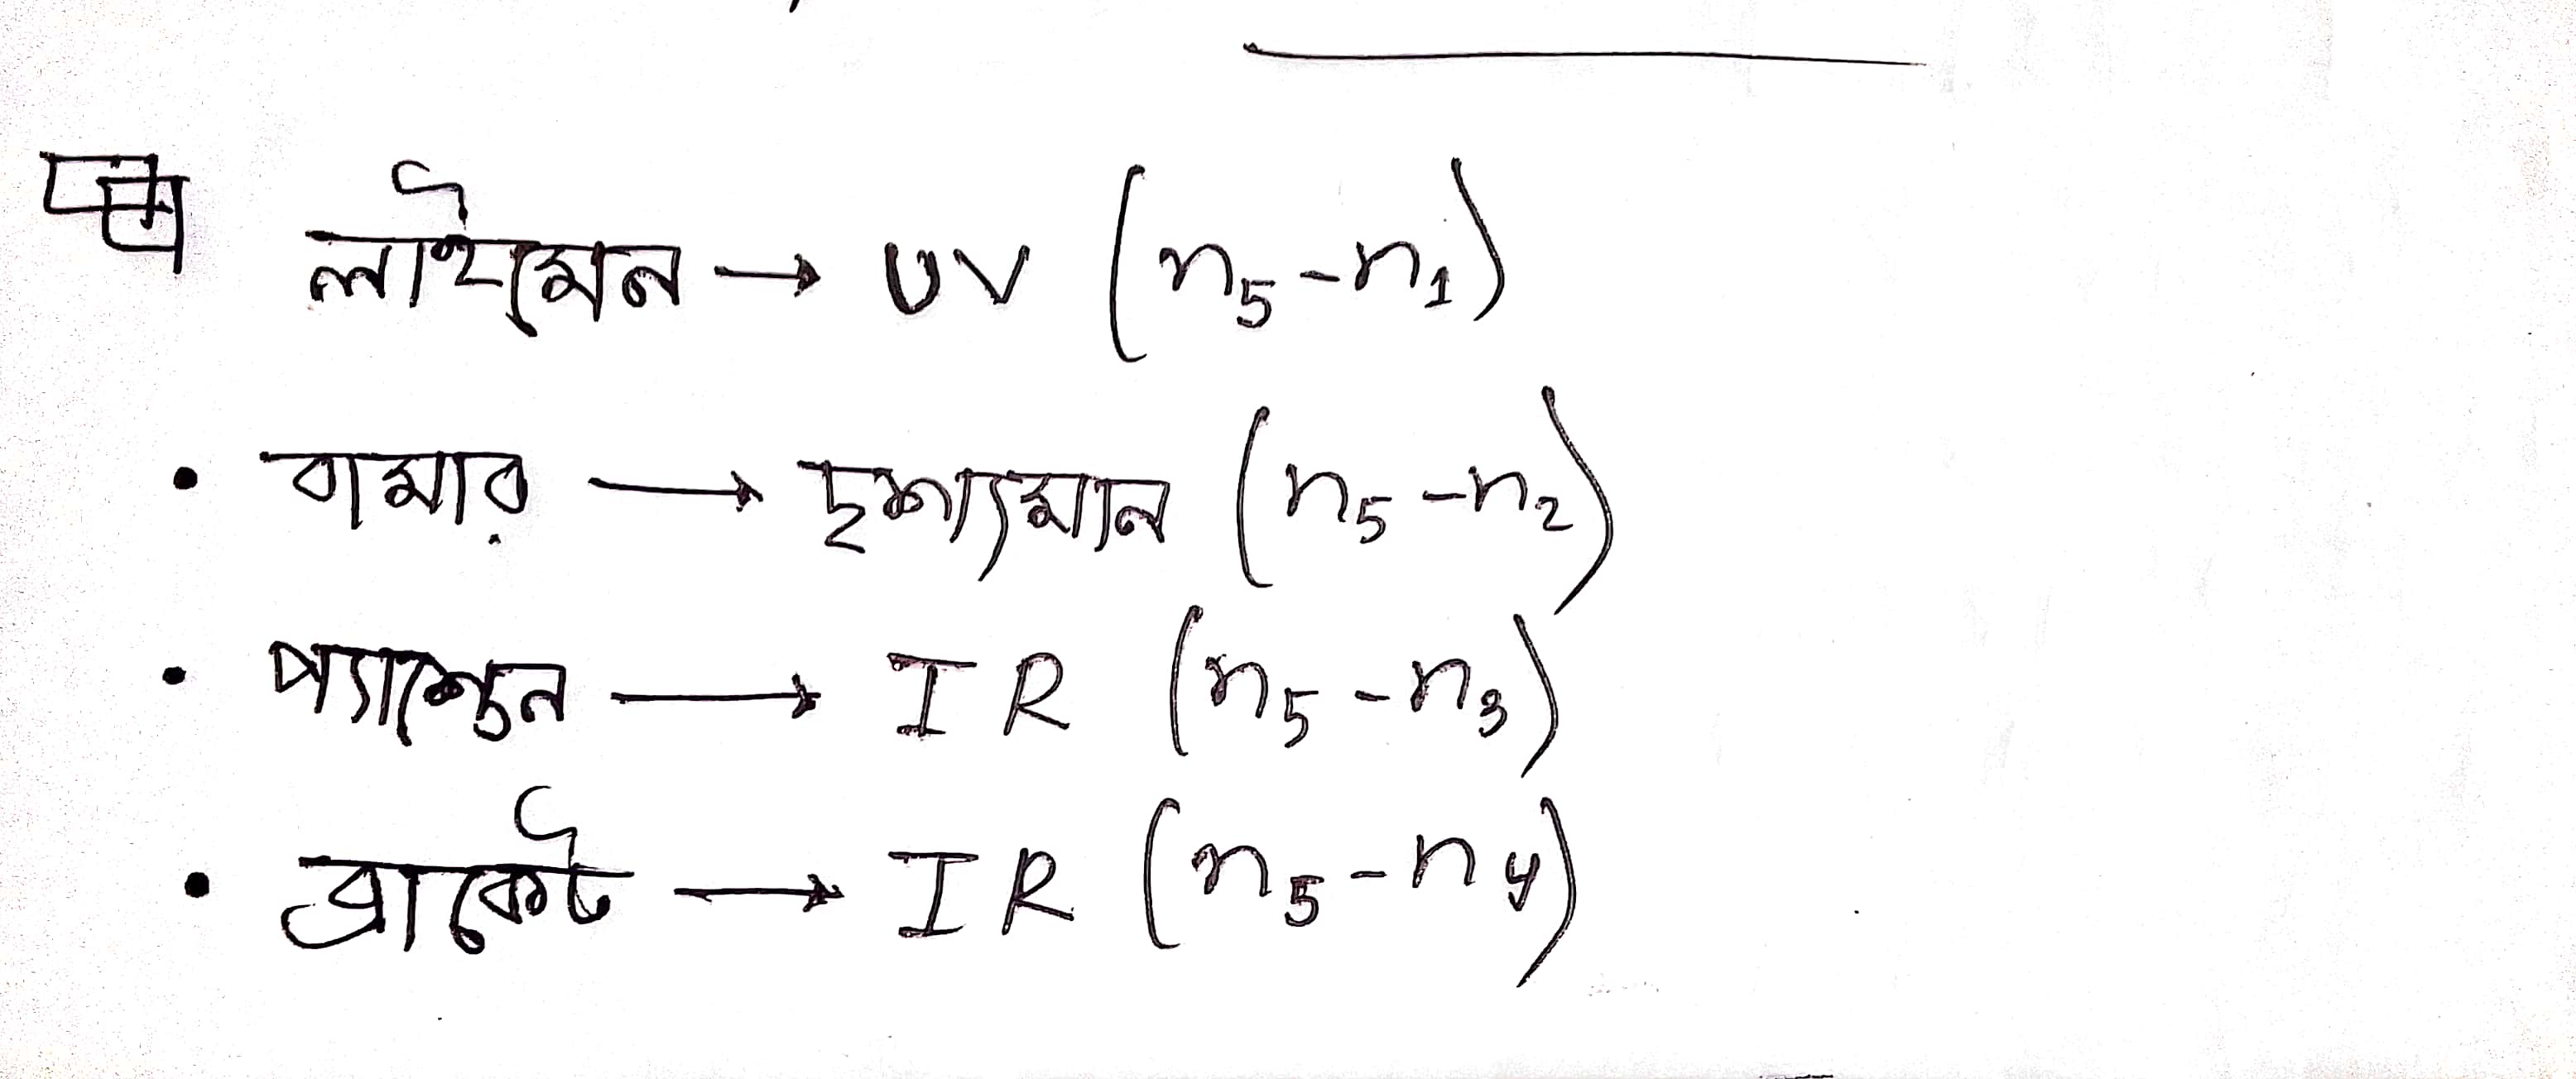 লাইমেন → UV (n₅-n₁)
• বামার → দৃশ্যমান (n₅-n₂)
• প্যাশ্চেন → IR (n₅-n₃)
• ব্রাকেট → IR (n₅-n₄)